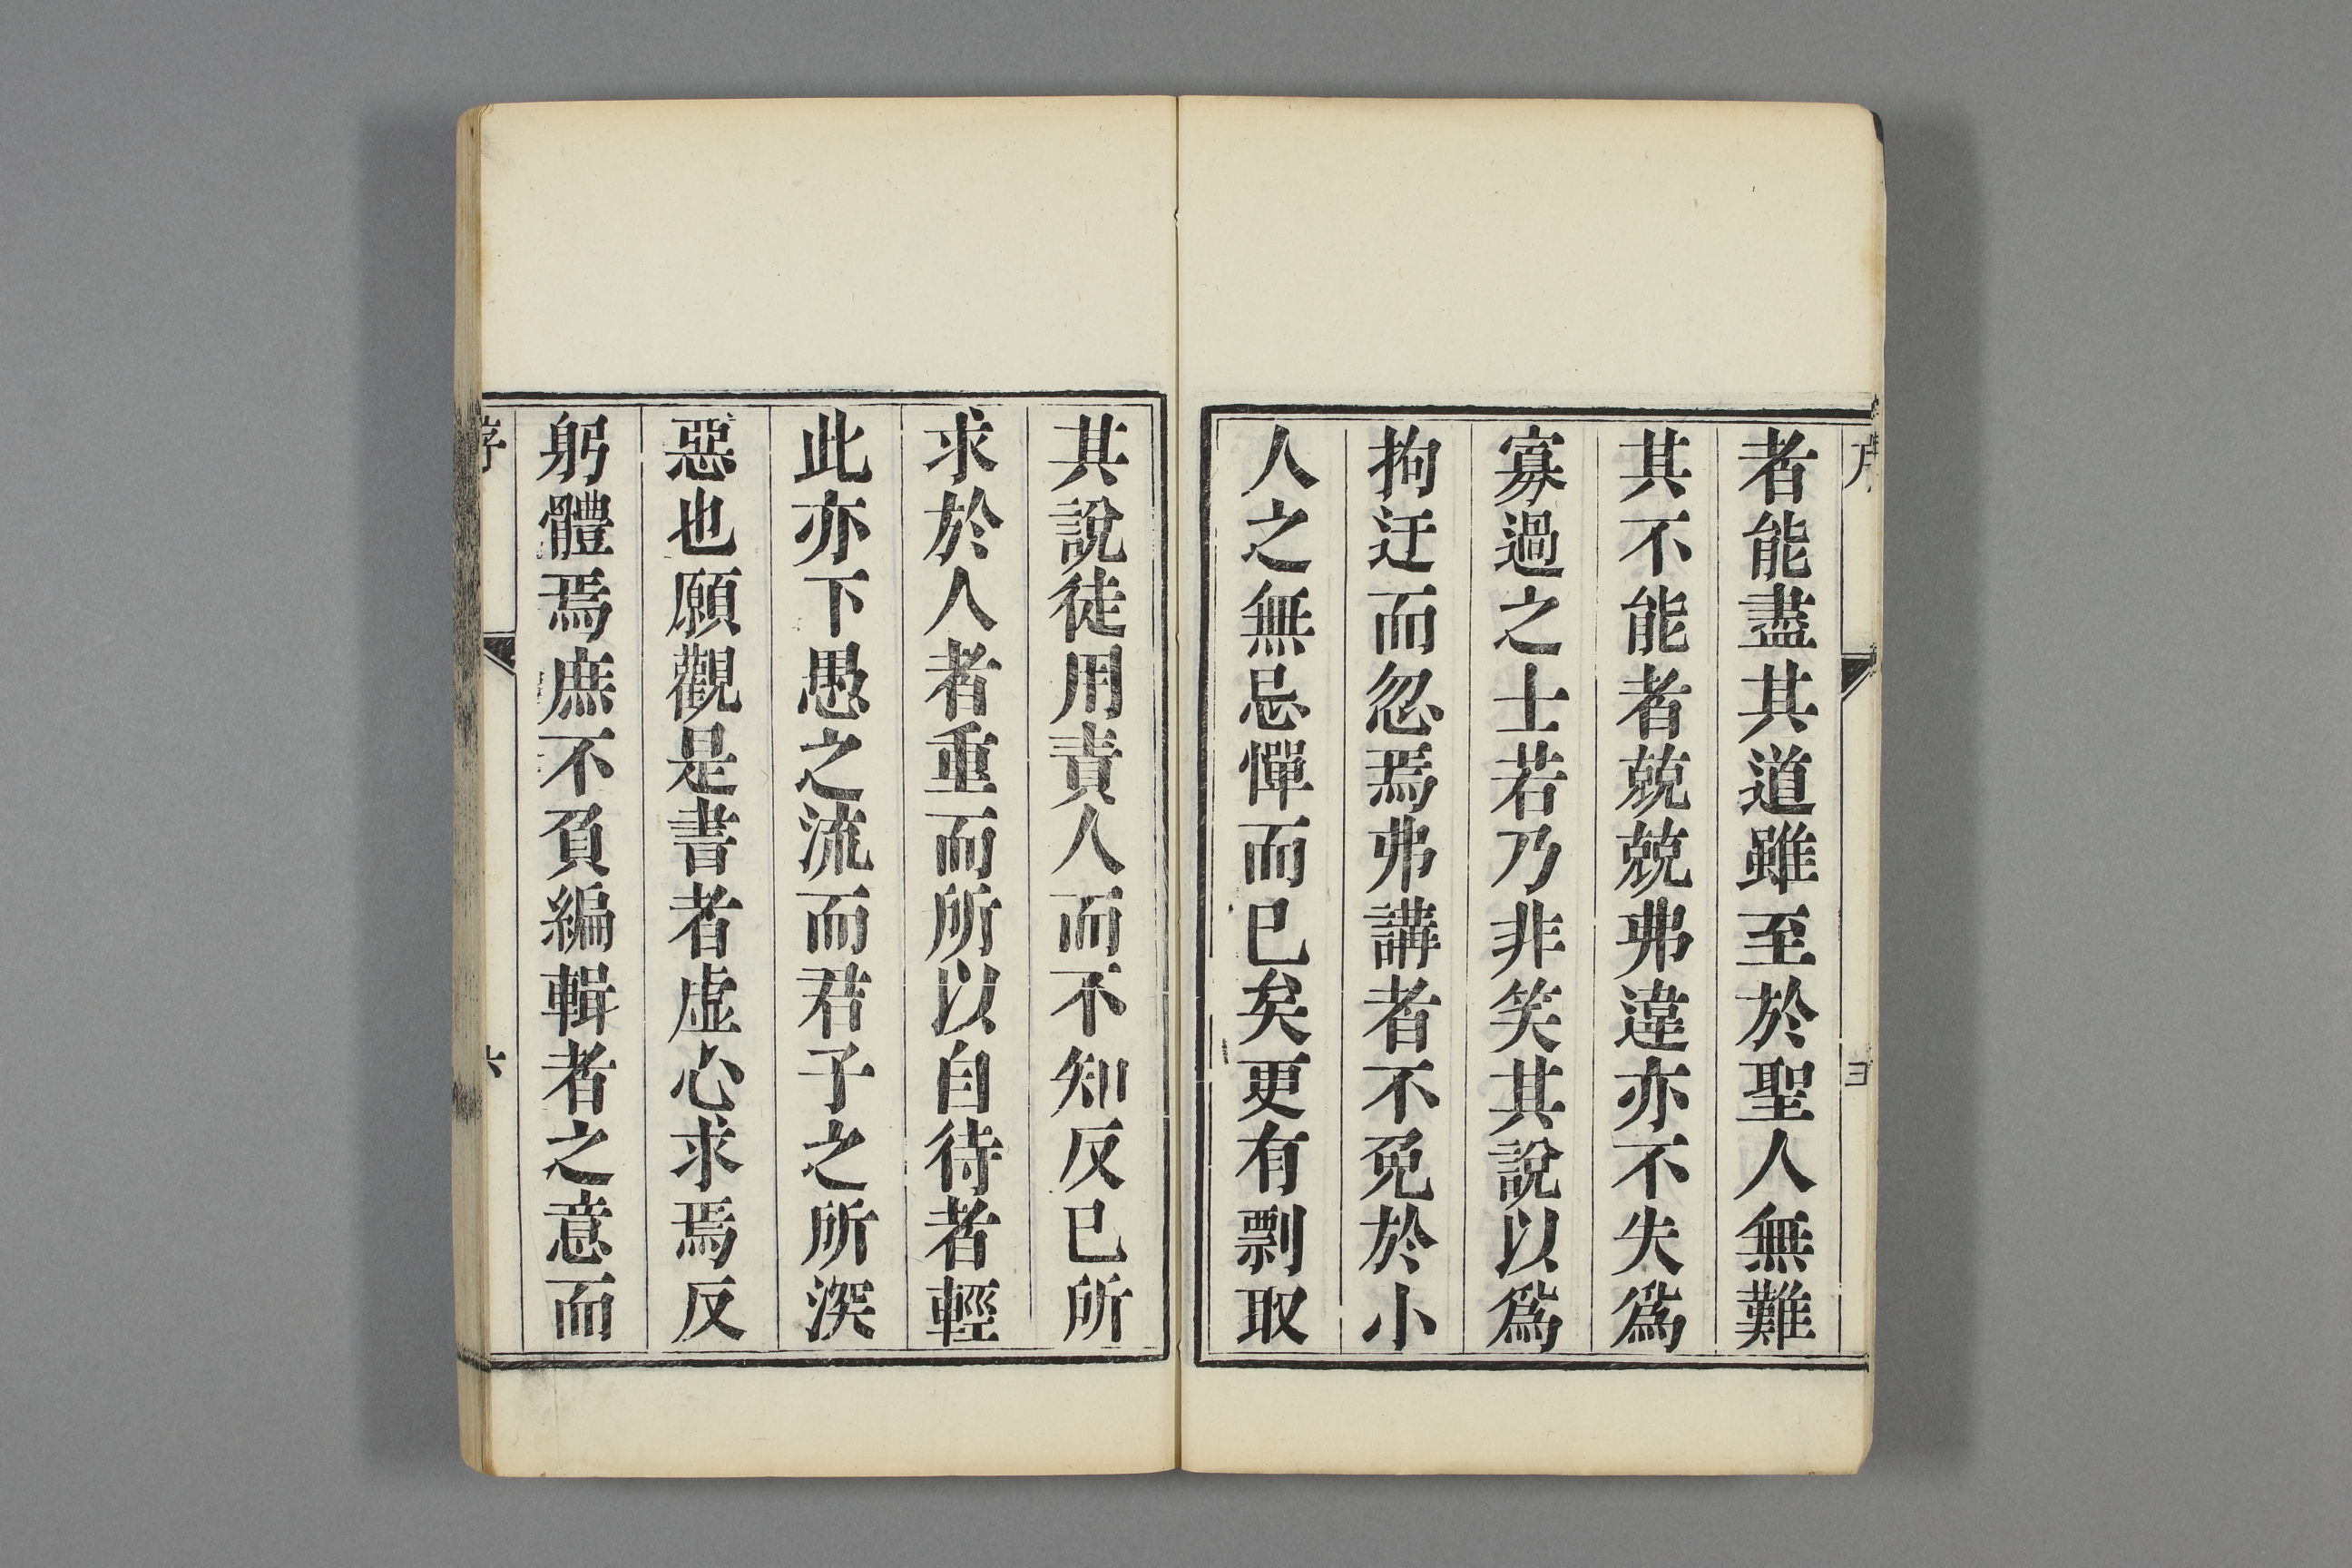 者能盡其道雖至於聖人無難
其不能者兢兢弗違亦不失爲
寡過之士若乃非笑其說以爲
拘迂而忽焉弗講者不免於小
人之無忌憚而已矣更有剽取
其說徒用責人而不知反已所
求於人者重而所以自待者輕
此亦下愚之流而君子之所深
惡也願觀是書者虛心求焉反
躬體焉庶不負編輯者之意而
序
六